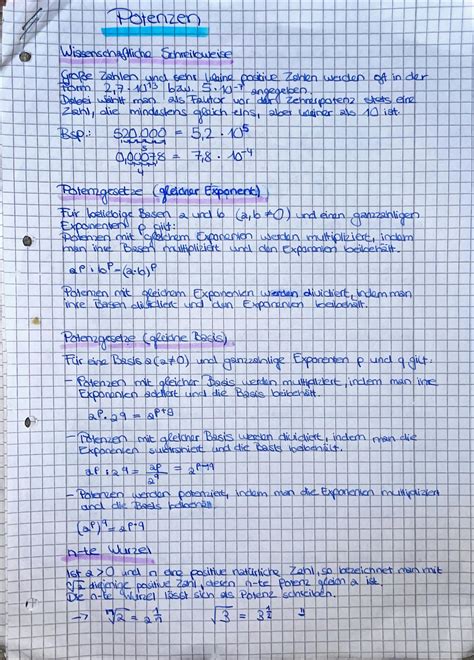 Potenzen
Wissenschaftliche Schreibweise
Große Zahlen und sehr kleine positive Zahlen werden oft in der
Form 2,7 · 10¹³ bzw. 5 · 10⁻⁷ angegeben.
Dabei wählt man als Faktor vor der Zehnerpotenz stets eine
Zahl, die mindestens gleich eins, aber kleiner als 10 ist.
Bsp.: 520.000 = 5,2 · 10⁵
5
0,00078 = 7,8 · 10⁻⁴
4
Potenzgesetze (gleicher Exponent)
Für beliebige Basen a und b (a,b ≠ 0) und einen ganzzahligen
Exponenten p gilt:
Potenzen mit gleichem Exponenten werden multipliziert, indem
man ihre Basen multipliziert und den Exponenten beibehält.
aᵖ · bᵖ = (a·b)ᵖ
Potenzen mit gleichem Exponenten werden dividiert, indem man
ihre Basen dividiert und den Exponenten beibehält.
Potenzgesetze (gleiche Basis)
Für eine Basis a (a≠0) und ganzzahlige Exponenten p und q gilt:
- Potenzen mit gleicher Basis werden multipliziert, indem man ihre
Exponenten addiert und die Basis beibehält.
aᵖ · a^q = a^(p+q)
- Potenzen mit gleicher Basis werden dividiert, indem man die
Exponenten subtrahiert und die Basis beibehält.
aᵖ : a^q = aᵖ/a^q = a^(p-q)
- Potenzen werden potenziert, indem man die Exponenten multipliziert
und die Basis beibehält.
(aᵖ)^q = a^(p·q)
n-te Wurzel
Ist a > 0 und n eine positive natürliche Zahl, so bezeichnet man mit
ⁿ√a diejenige positive Zahl, deren n-te Potenz gleich a ist.
Die n-te Wurzel lässt sich als Potenz schreiben.
→ ⁿ√2 = 2^(1/n) √3 = 3^(1/2)